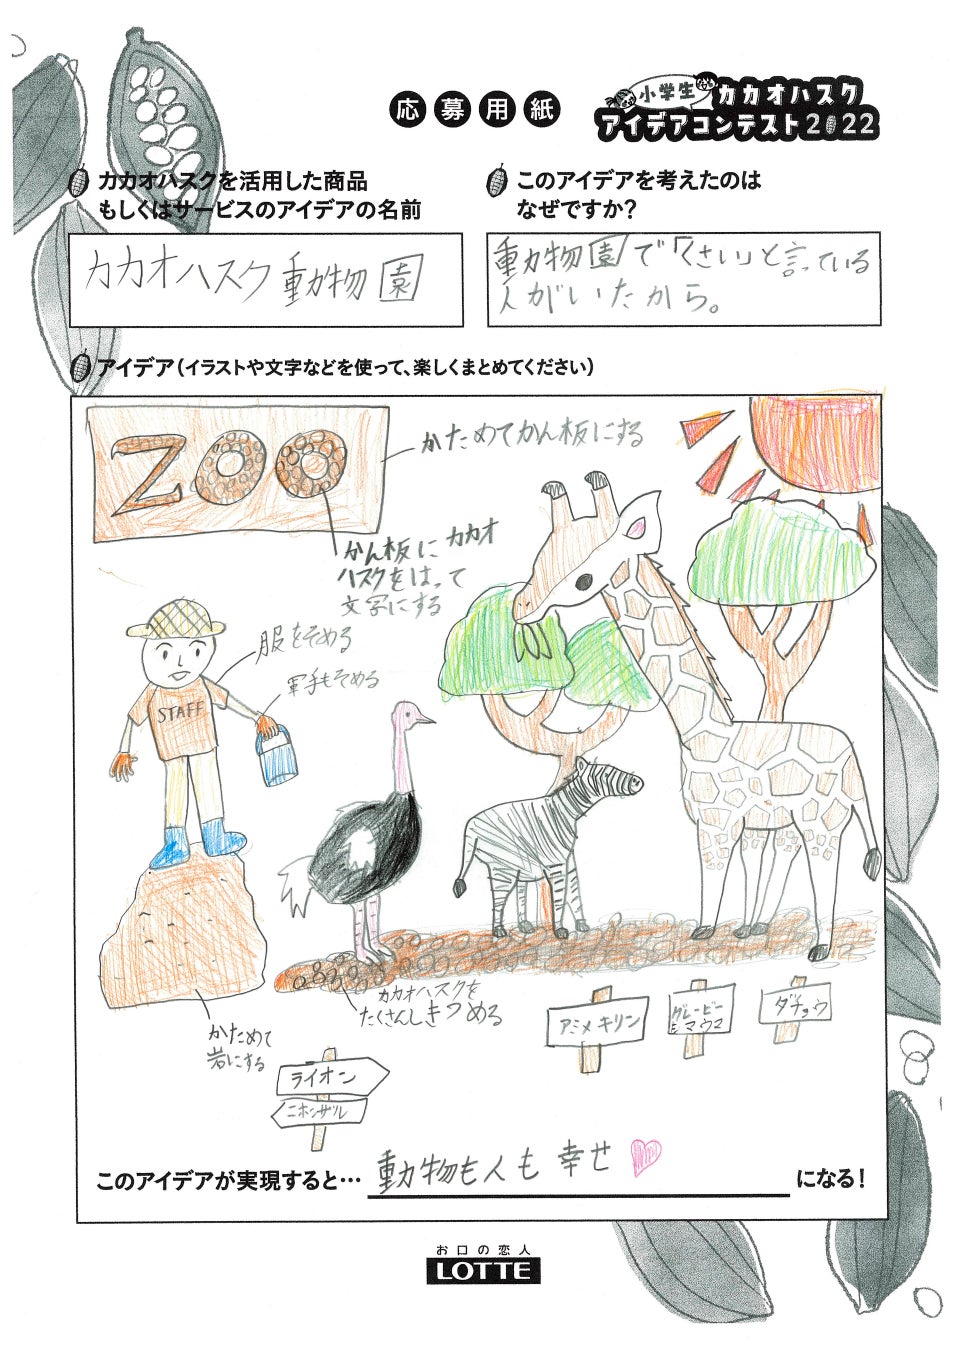 応募用紙
小学生
カカオハスク
アイデアコンテスト2022
カカオハスクを活用した商品
もしくはサービスのアイデアの名前
カカオハスク動物園
このアイデアを考えたのは
なぜですか？
動物園で「くさい」と言っている
人がいたから。
アイデア（イラストや文字などを使って、楽しくまとめてください）
ZOO
かためてかん板にする
かん板にカカオ
ハスクをはって
文字にする
服をそめる
軍手もそめる
STAFF
カカオハスクを
たくさんしきつめる
かためて
岩にする
アミメキリン
グレービー
シマウマ
ダチョウ
ライオン
ニホンザル
このアイデアが実現すると…動物も人も幸せになる！
お口の恋人
LOTTE